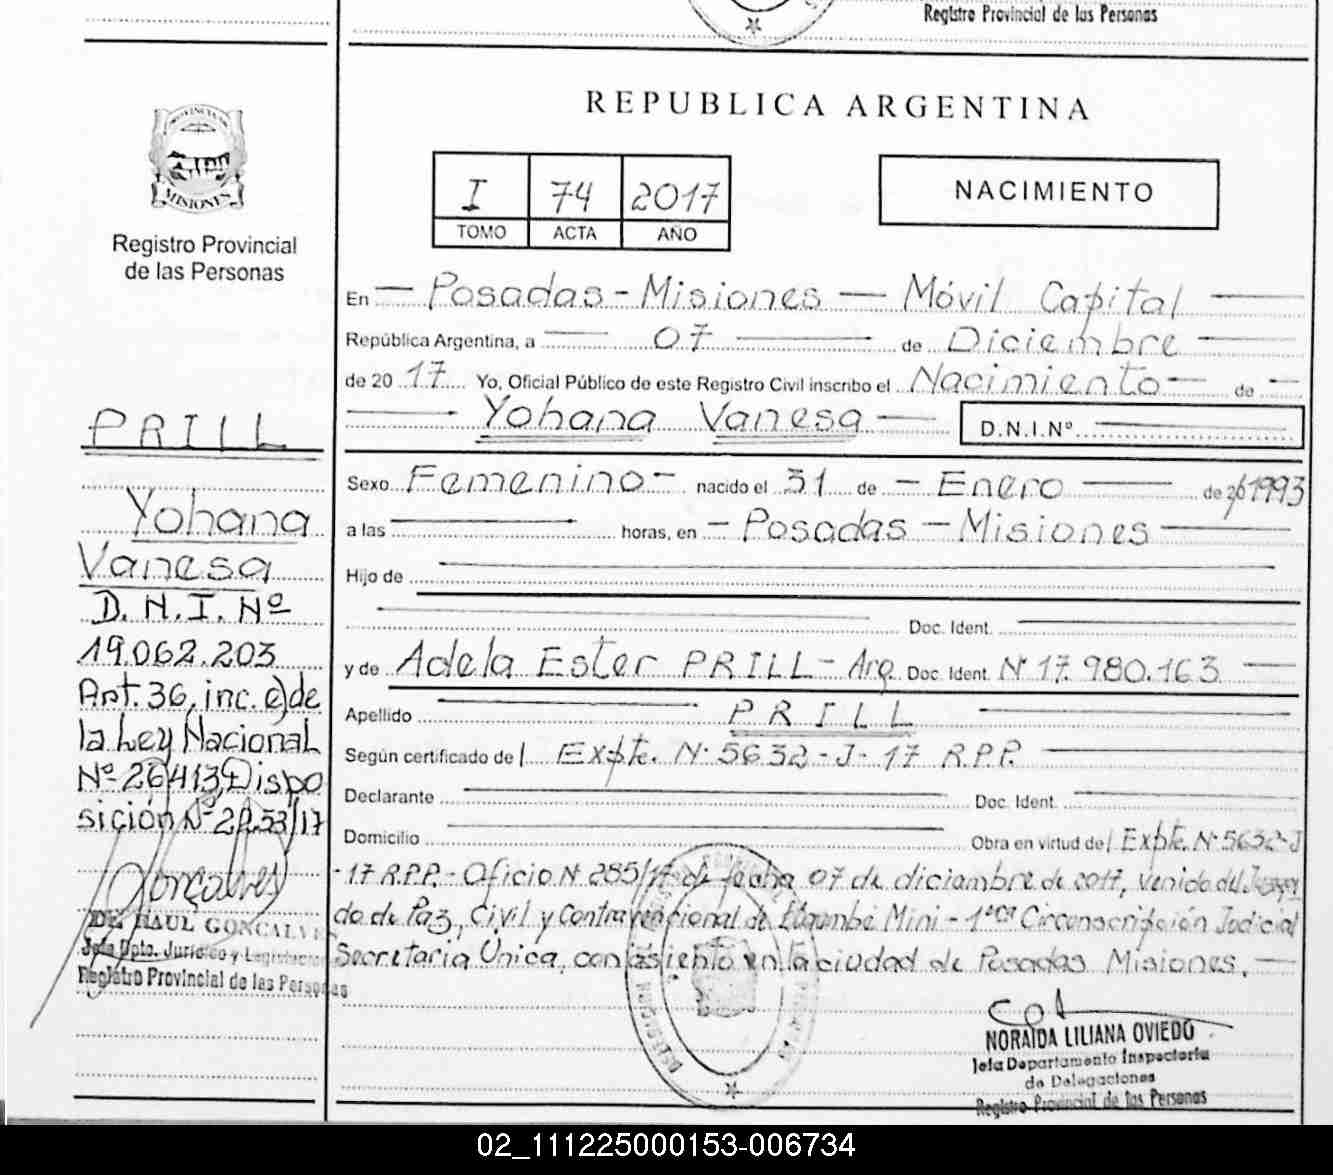 Registro Provincial de las Personas
REPUBLICA ARGENTINA
PROVINCIA DE
MISIONES
Registro Provincial
de las Personas
I 74 2017
TOMO ACTA AÑO
NACIMIENTO
En — Posadas - Misiones — Móvil Capital —
República Argentina, a — 07 — de Diciembre —
de 2017 Yo, Oficial Público de este Registro Civil inscribo el Nacimiento — de —
— Yohana Vanesa — D.N.I.Nº —
Sexo Femenino - nacido el 31 de - Enero — de 20 1993
a las — horas, en - Posadas - Misiones —
Hijo de —
— Doc. Ident. —
y de Adela Ester PRILL - Arg. Doc. Ident. Nº 17.980.163 —
Apellido — PRILL —
Según certificado de Expte. Nº 5632-J-17 R.P.P. —
Declarante — Doc. Ident. —
Domicilio — Obra en virtud de Expte. Nº 5632-J
-17 R.P.P. - Oficio Nº 285/17 de fecha 07 de diciembre de 2017, venido del Juzga
do de Paz, Civil y Contravencional de Mini - 1era Circunscripción Judicial
Secretaria Única, con asiento en la ciudad de Posadas Misiones. —
PRILL
Yohana
Vanesa
D.N.I. Nº
19.062.203
Art. 36, inc. e) de
la Ley Nacional
Nº 26413, Dispo
sición Nº 2253/17
Gonçalves
DR. RAUL GONCALVES
Jefe Dpto. Jurídico y Legislación
Registro Provincial de las Personas
NORAIDA LILIANA OVIEDO
Jefa Departamento Inspectoría
de Delegaciones
Registro Provincial de las Personas
02_111225000153-006734